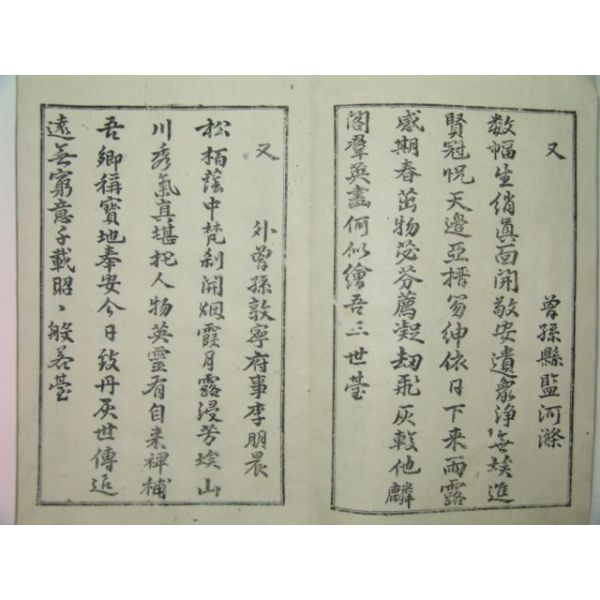 又 曾孫縣監河滌
数幅生綃眞面開敬安遺象淨無埃進
賢冠帨天邊亞搢笏紳依日下来雨露
感期春茁物苾芬薦凝劫飛灰較他麟
閣羣英畵何似繪吾三世臺
又 外曾孫敦寧府事李朋晨
松栢蔭中梵刹開烟霞月露浸芳埃山
川秀氣真堪托人物英靈有自来裨補
吾鄉稱寶地奉安今日致丹灰世傳追
遠無窮意千載昭〻般若臺